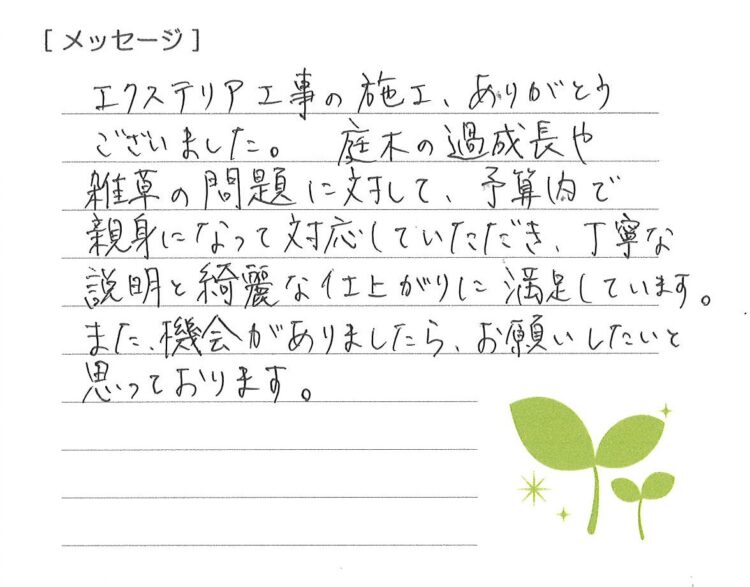 [ メッセージ ]
エクステリア工事の施工、ありがとう
ございました。 庭木の過成長や
雑草の問題に対して、予算内で
親身になって対応していただき、丁寧な
説明と綺麗な仕上がりに満足しています。
また、機会がありましたら、お願いしたいと
思っております。